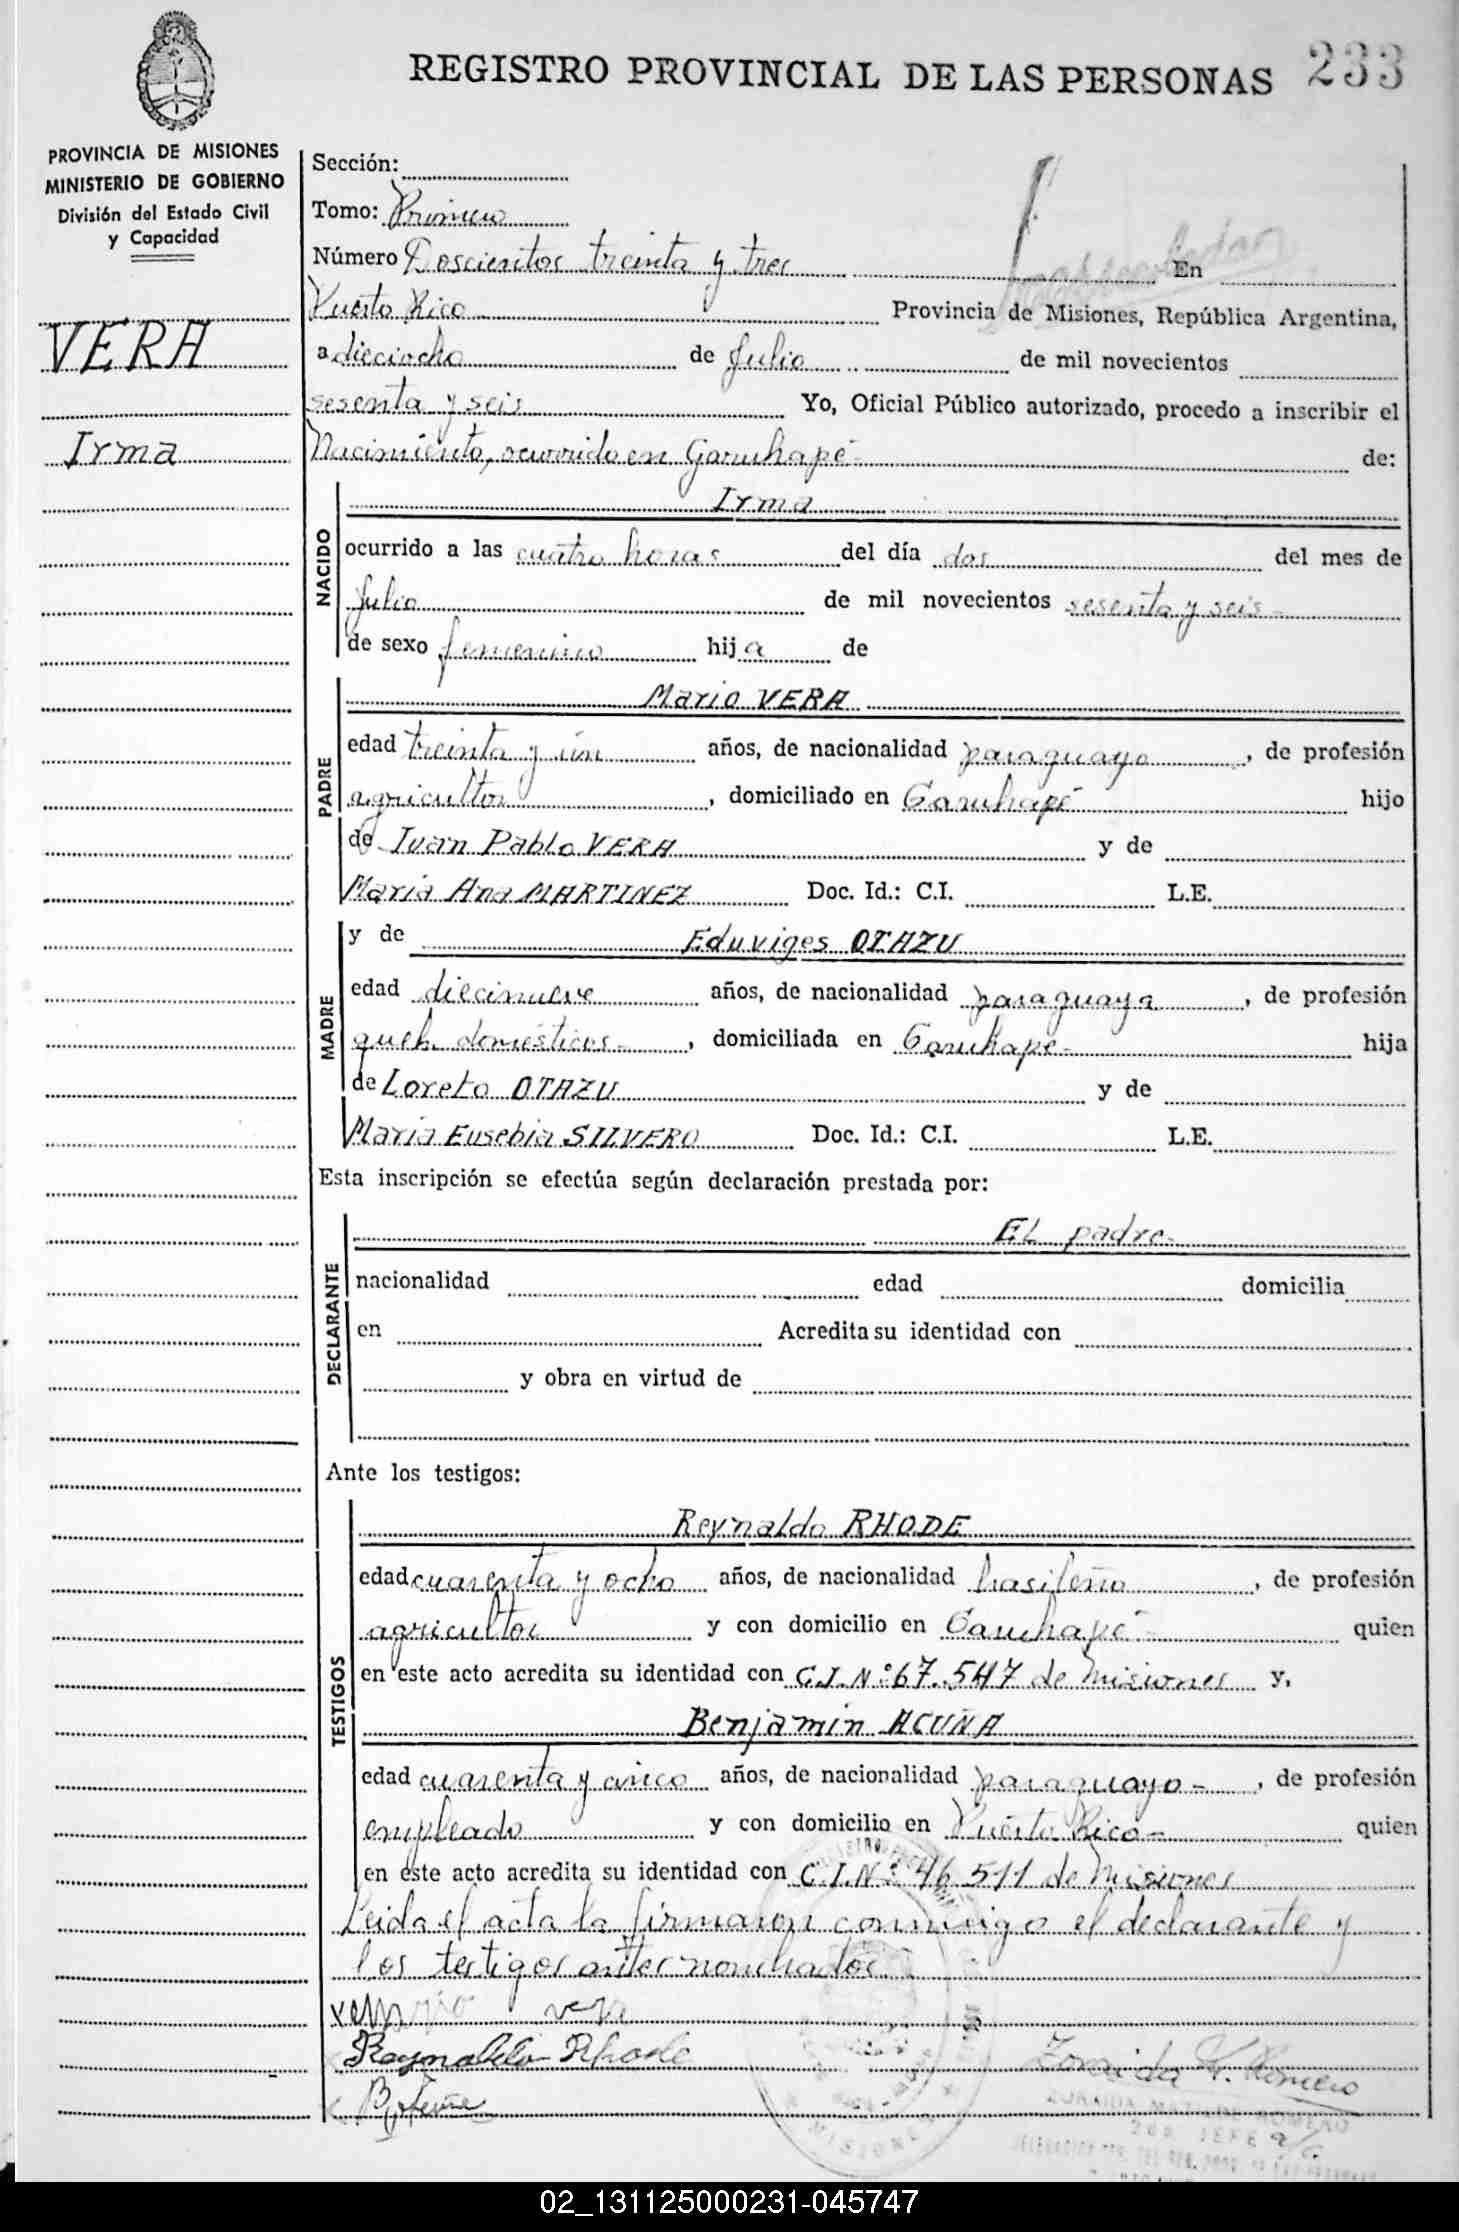 REGISTRO PROVINCIAL DE LAS PERSONAS 233
PROVINCIA DE MISIONES
MINISTERIO DE GOBIERNO
División del Estado Civil
y Capacidad
VERA
Irma
Sección:
Tomo: Primero
Número Doscientos treinta y tres En
Puerto Rico Provincia de Misiones, República Argentina,
a dieciocho de Julio de mil novecientos
sesenta y seis Yo, Oficial Público autorizado, procedo a inscribir el
Nacimiento, ocurrido en Garuhapé- de:
NACIDO
Irma
ocurrido a las cuatro horas del día dos del mes de
Julio de mil novecientos sesenta y seis-
de sexo femenino hija de
PADRE
Mario VERA
edad treinta y un años, de nacionalidad paraguayo, de profesión
agricultor, domiciliado en Garuhapé hijo
de Juan Pablo VERA y de
María Ana MARTINEZ Doc. Id.: C.I. L.E.
MADRE
y de Eduviges OTAZU
edad diecinueve años, de nacionalidad paraguaya, de profesión
queh. domésticos-, domiciliada en Garuhapé- hija
de Loreto OTAZU y de
María Eusebia SILVERO Doc. Id.: C.I. L.E.
Esta inscripción se efectúa según declaración prestada por:
DECLARANTE
El padre-
nacionalidad edad domicilia
en Acredita su identidad con
y obra en virtud de
Ante los testigos:
TESTIGOS
Reynaldo RHODE
edad cuarenta y ocho años, de nacionalidad brasileño, de profesión
agricultor y con domicilio en Garuhapé- quien
en este acto acredita su identidad con C.I.Nº:67.547 de Misiones y,
Benjamín ACUÑA
edad cuarenta y cinco años, de nacionalidad paraguayo-, de profesión
empleado y con domicilio en Puerto Rico- quien
en este acto acredita su identidad con C.I.Nº:46.511 de Misiones
Leida el acta la firmaron conmigo el declarante y
los testigos antes nombrados
vera
Reynaldo Rhode
Zoraida M. Romero
ZORAIDA MATILDE ROMERO
2do. JEFE a/c.
MISIONES
02_131125000231-045747